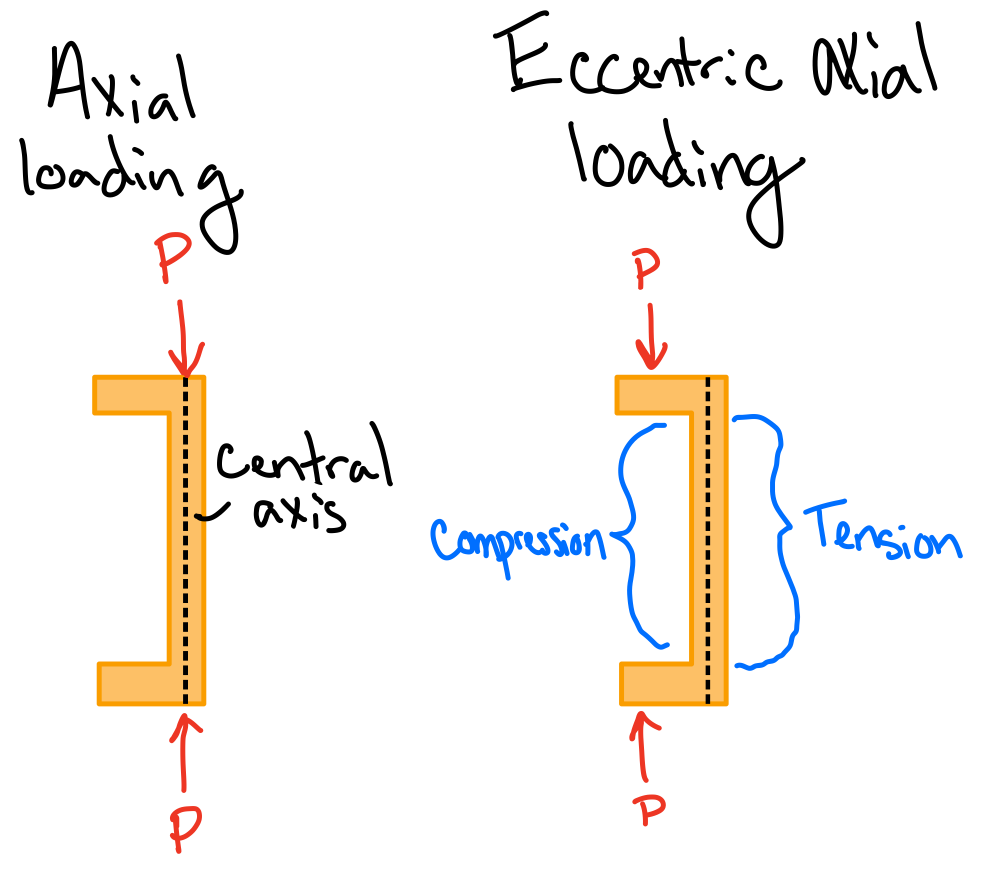 Axial
loading
P
central
axis
P
Eccentric axial
loading
P
Compression
Tension
P